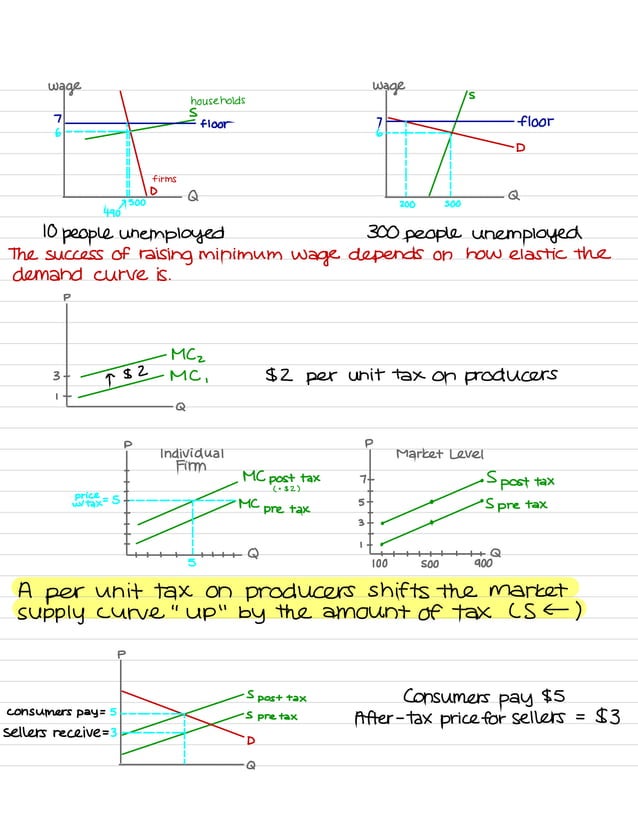 wage
households
S
7
floor
6
firms
D
Q
490
500
wage
S
7
floor
6
D
Q
200
500
10 people unemployed
300 people unemployed
The success of raising minimum wage depends on how elastic the
demand curve is.
P
MC2
3
↑ $2
MC1
1
Q
$2 per unit tax on producers
P
Individual
Firm
MC post tax
(+$2)
price
w/tax = 5
MC pre tax
Q
5
P
Market Level
7
S post tax
5
S pre tax
3
1
Q
100
500
400
A per unit tax on producers shifts the market
supply curve "up" by the amount of tax (S ←)
P
S post tax
consumers pay = 5
S pre tax
sellers receive = 3
D
Q
Consumers pay $5
After-tax price for sellers = $3